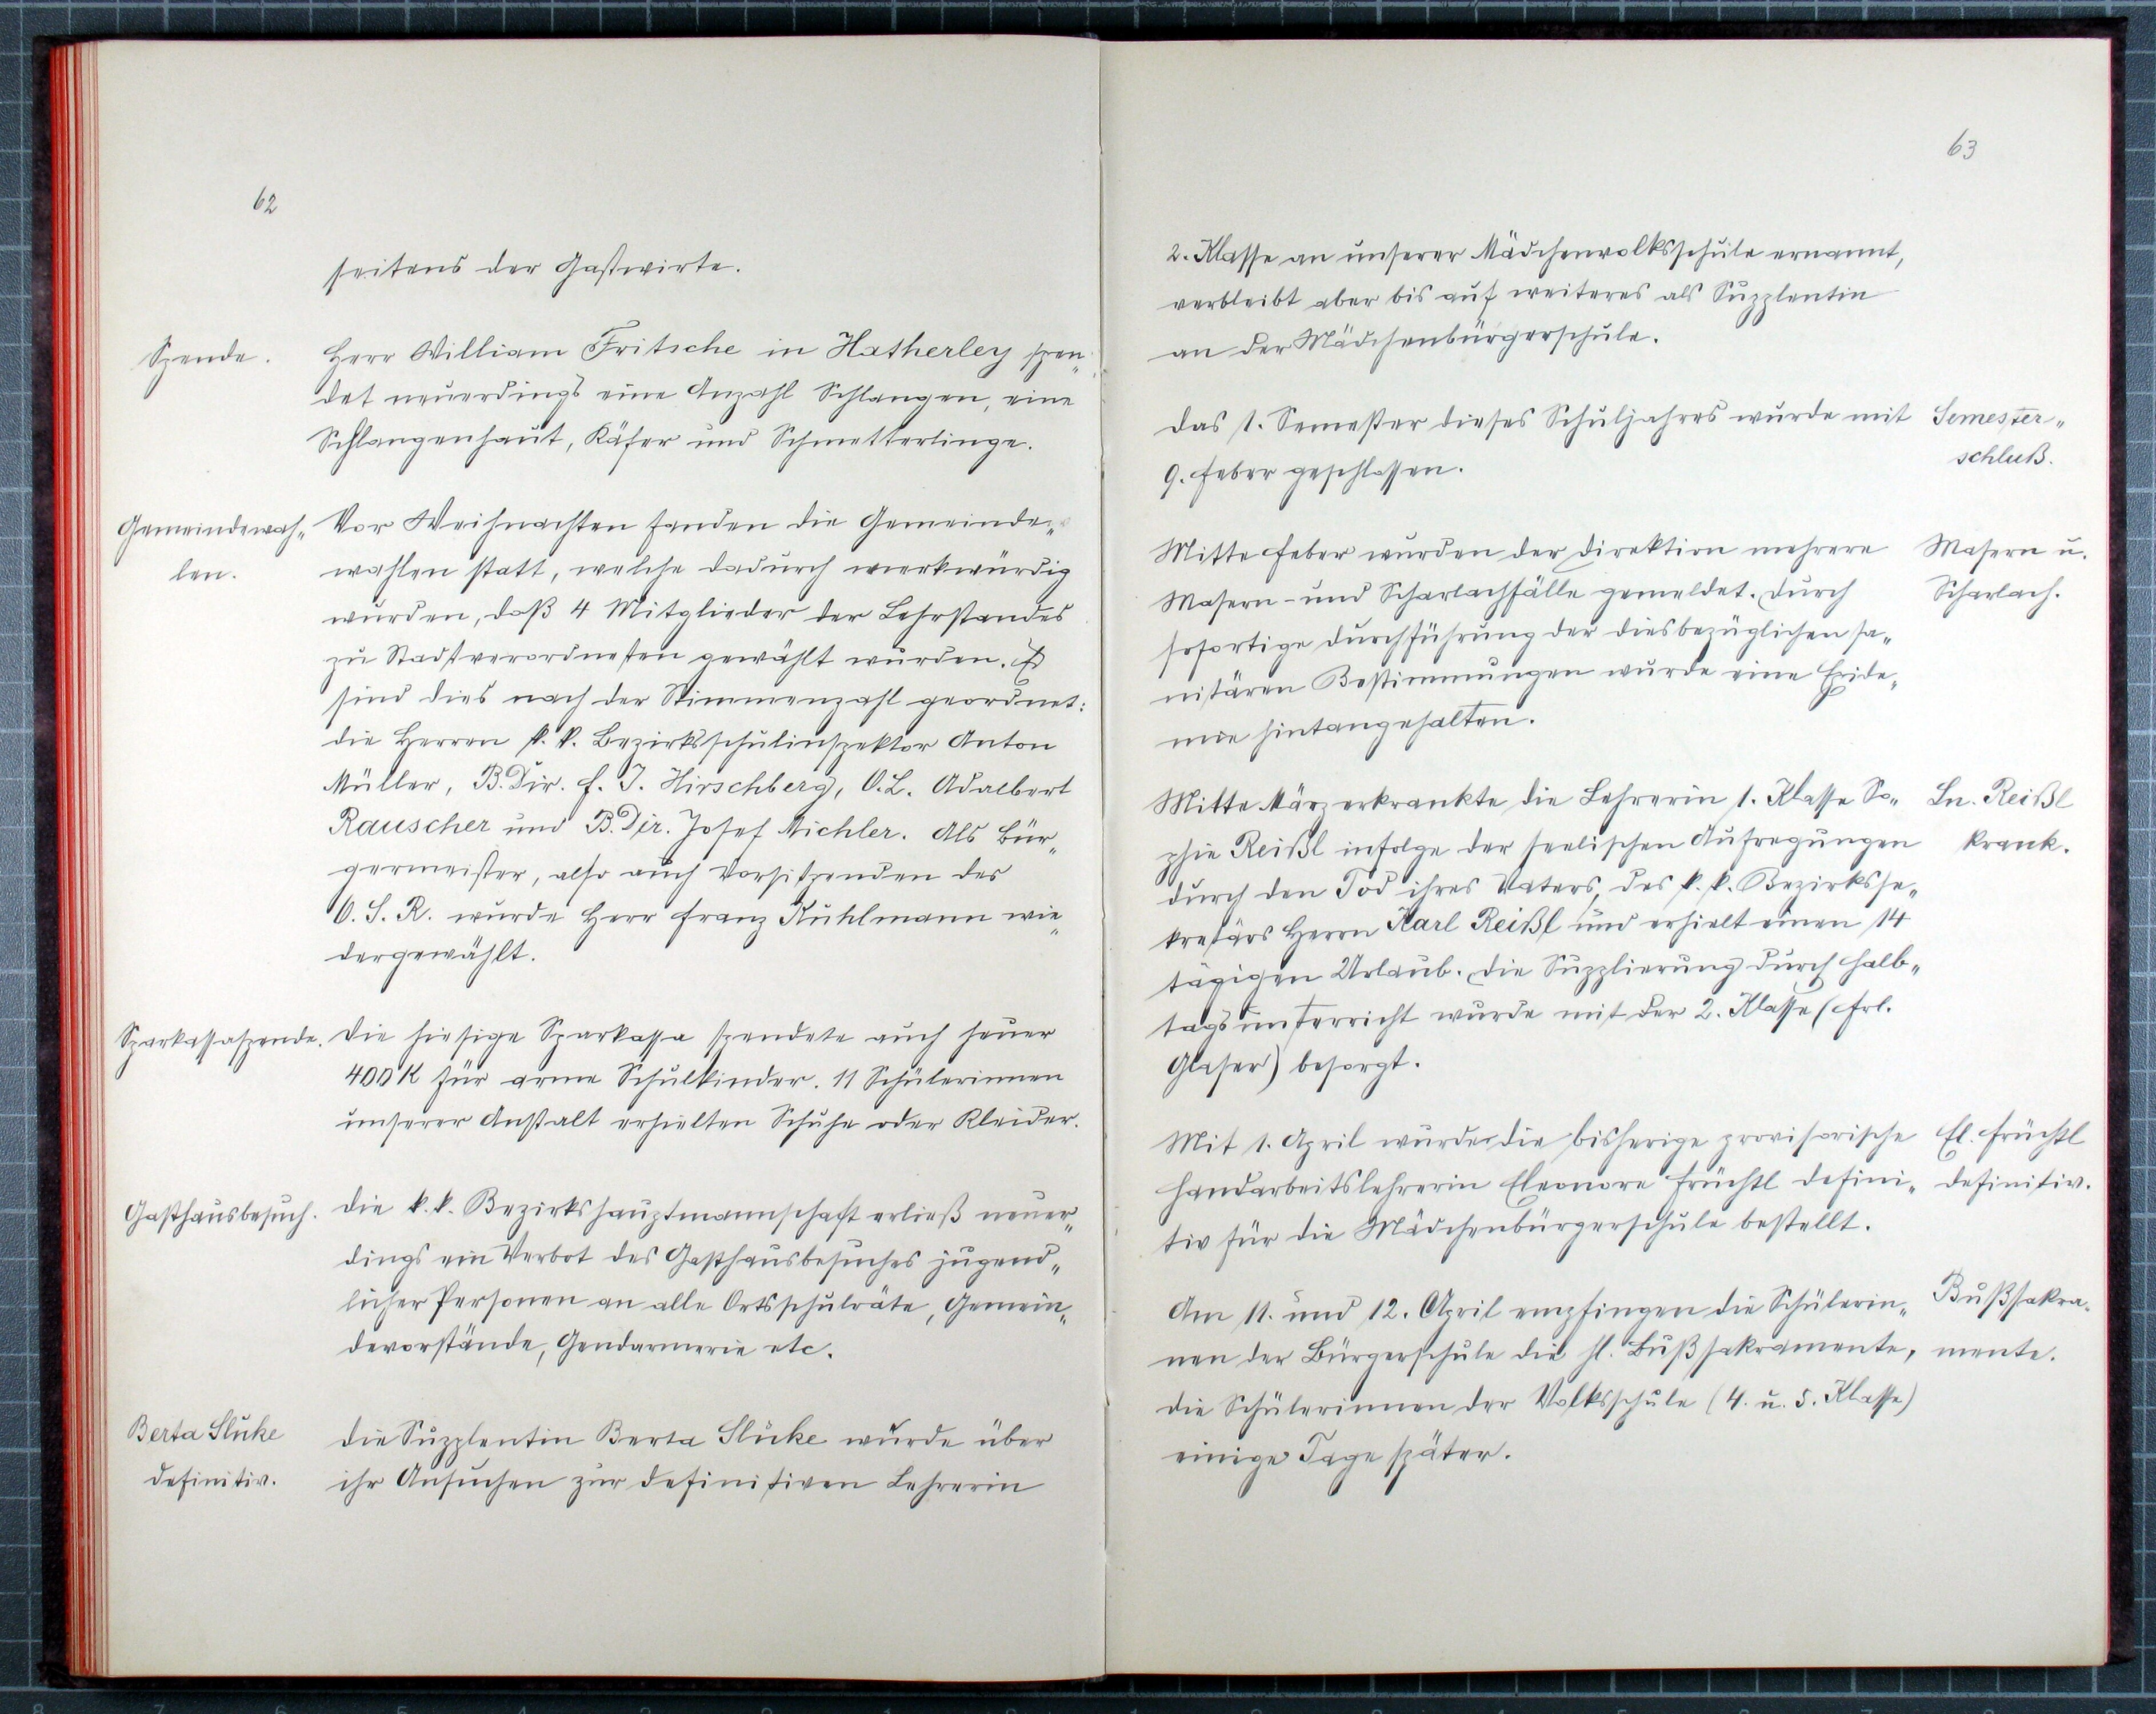 62
seitens der Gastwirte.
Spende.
Herr William Fritsche in Hatherley spen„
det neuerdings eine Anzahl Schlangen, eine
Schlangenhaut, Käfer und Schmetterlinge.
Gemeindewah„
len.
Vor Weihnachten fanden die Gemeinde„
wahlen statt, welche dadurch merkwürdig
wurden, daß 4 Mitglieder der Lehrstandes
zu Stadtverordneten gewählt wurden. Es
sind dies nach der Stimmenzahl geordnet:
die Herren k. k. Bezirksschulinspektor Anton
Müller, B. Dir. F. J. Hirschberg, O. L. Adalbert
Rauscher und B. Dir. Josef Michler. Als Bür„
germeister, also auch Vorsitzenden des
O. S. R. wurde Herr Franz Kuhlmann wie„
dergewählt.
Sparkassaspende.
Die hiesige Sparkassa spendete auch heuer
400 K für arme Schulkinder. 11 Schülerinnen
unserer Anstalt erhielten Schuhe oder Kleider.
Gasthausbesuch.
Die k. k. Bezirkshauptmannschaft erließ neuer„
dings ein Verbot des Gasthausbesuches jugend„
licher Personen an alle Ortsschulräte, Gemein„
devorstände, Gendarmerie etc.
Berta Sluke
definitiv.
Die Supplentin Berta Sluke wurde über
ihr Ansuchen zur definitiven Lehrerin
63
2. Klasse an unserer Mädchenvolksschule ernannt,
verbleibt aber bis auf weiteres als Supplentin
an der Mädchenbürgerschule.
Das 1. Semester dieses Schuljahres wurde mit
9. Feber geschlossen.
Semester„
schluß.
Mitte Feber wurden der Direktion mehrere
Masern- und Scharlachfälle gemeldet. Durch
sofortige Durchführung der diesbezüglichen sa„
nitären Bestimmungen wurde eine Epide„
mie hintangehalten.
Masern u.
Scharlach.
Mitte März erkrankte die Lehrerin 1. Klasse So„
phie Reißl infolge der seelischen Aufregungen
durch den Tod ihres Vaters, des k. k. Bezirksse„
kretärs Herrn Karl Reißl und erhielt einen 14
tägigen Urlaub. Die Supplierung durch Halb„
tagsunterricht wurde mit der 2. Klasse (Frl.
Glaser) besorgt.
Ln. Reißl
krank.
Mit 1. April wurde die bisherige provisorische
Handarbeitslehrerin Eleonore Früchtl defini„
tiv für die Mädchenbürgerschule bestellt.
El. Früchtl
definitiv.
Am 11. und 12. April empfingen die Schülerin„
nen der Bürgerschule die hl. Bußsakramente,
die Schülerinnen der Volksschule (4. u. 5. Klasse)
einige Tage später.
Bußsakra„
mente.